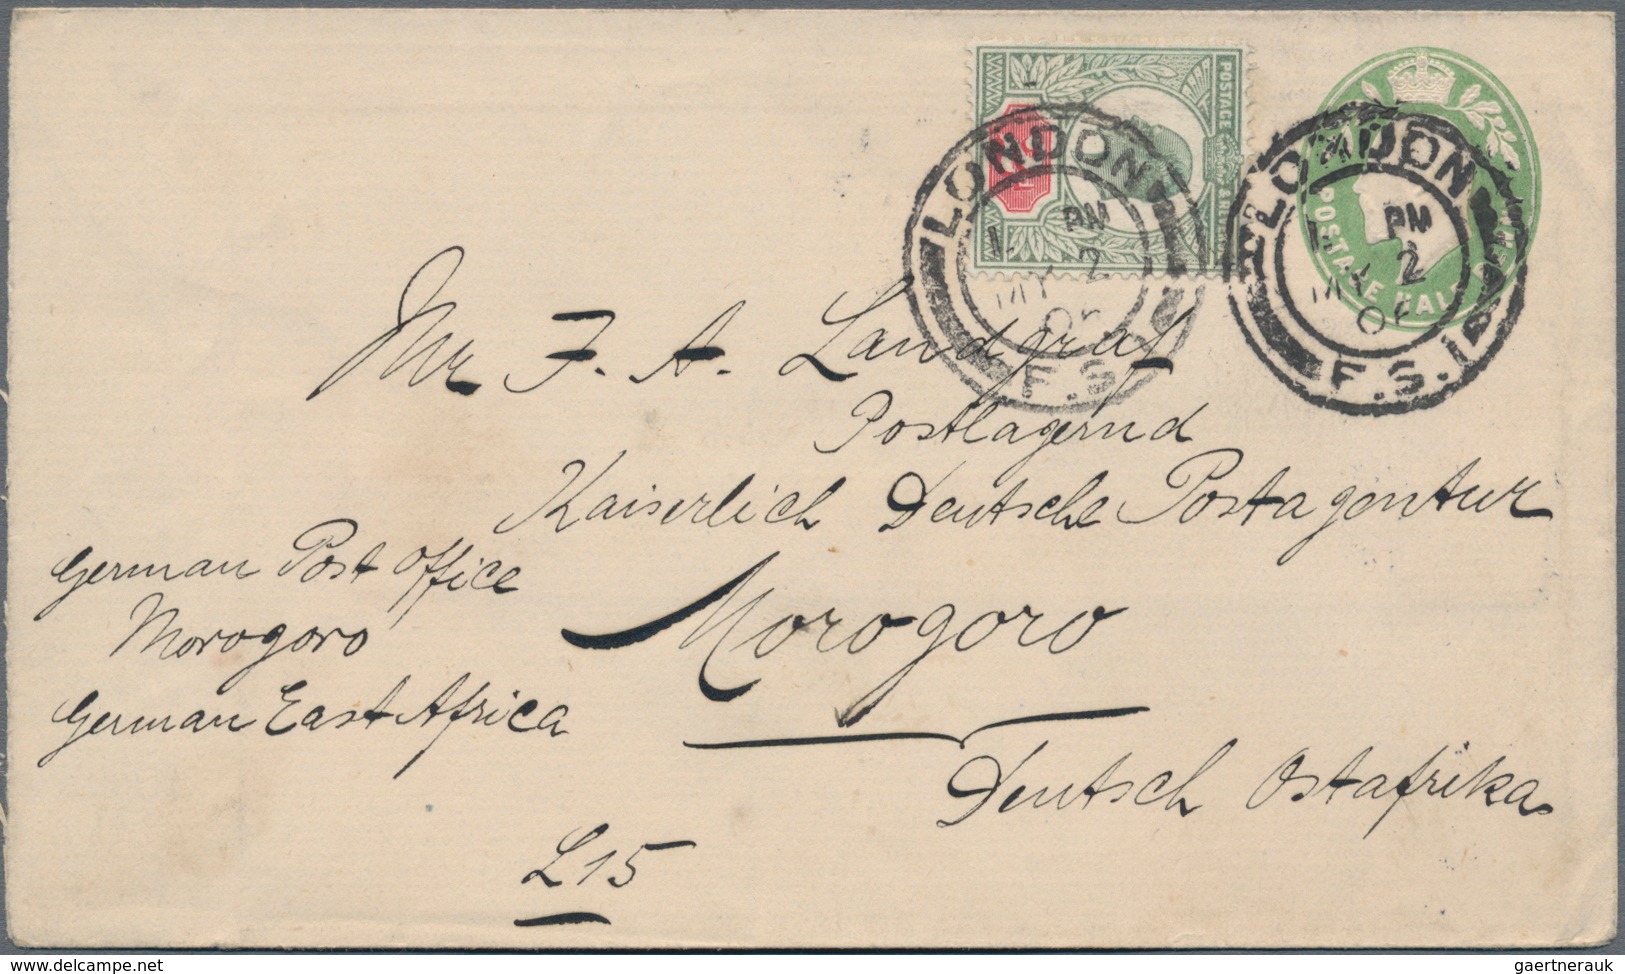 POSTAGE
LONDON
PM
MY 2
F.S.
LONDON
PM
MY 2
F.S.1
POSTAGE HALF PENNY
Mr F. A. Landgraf
Postlagernd
Kaiserlich Deutsche Postagentur
Morogoro
Deutsch Ostafrika
German Post Office
Morogoro
German East Africa
£15
delcampe.net
gaertnerauk